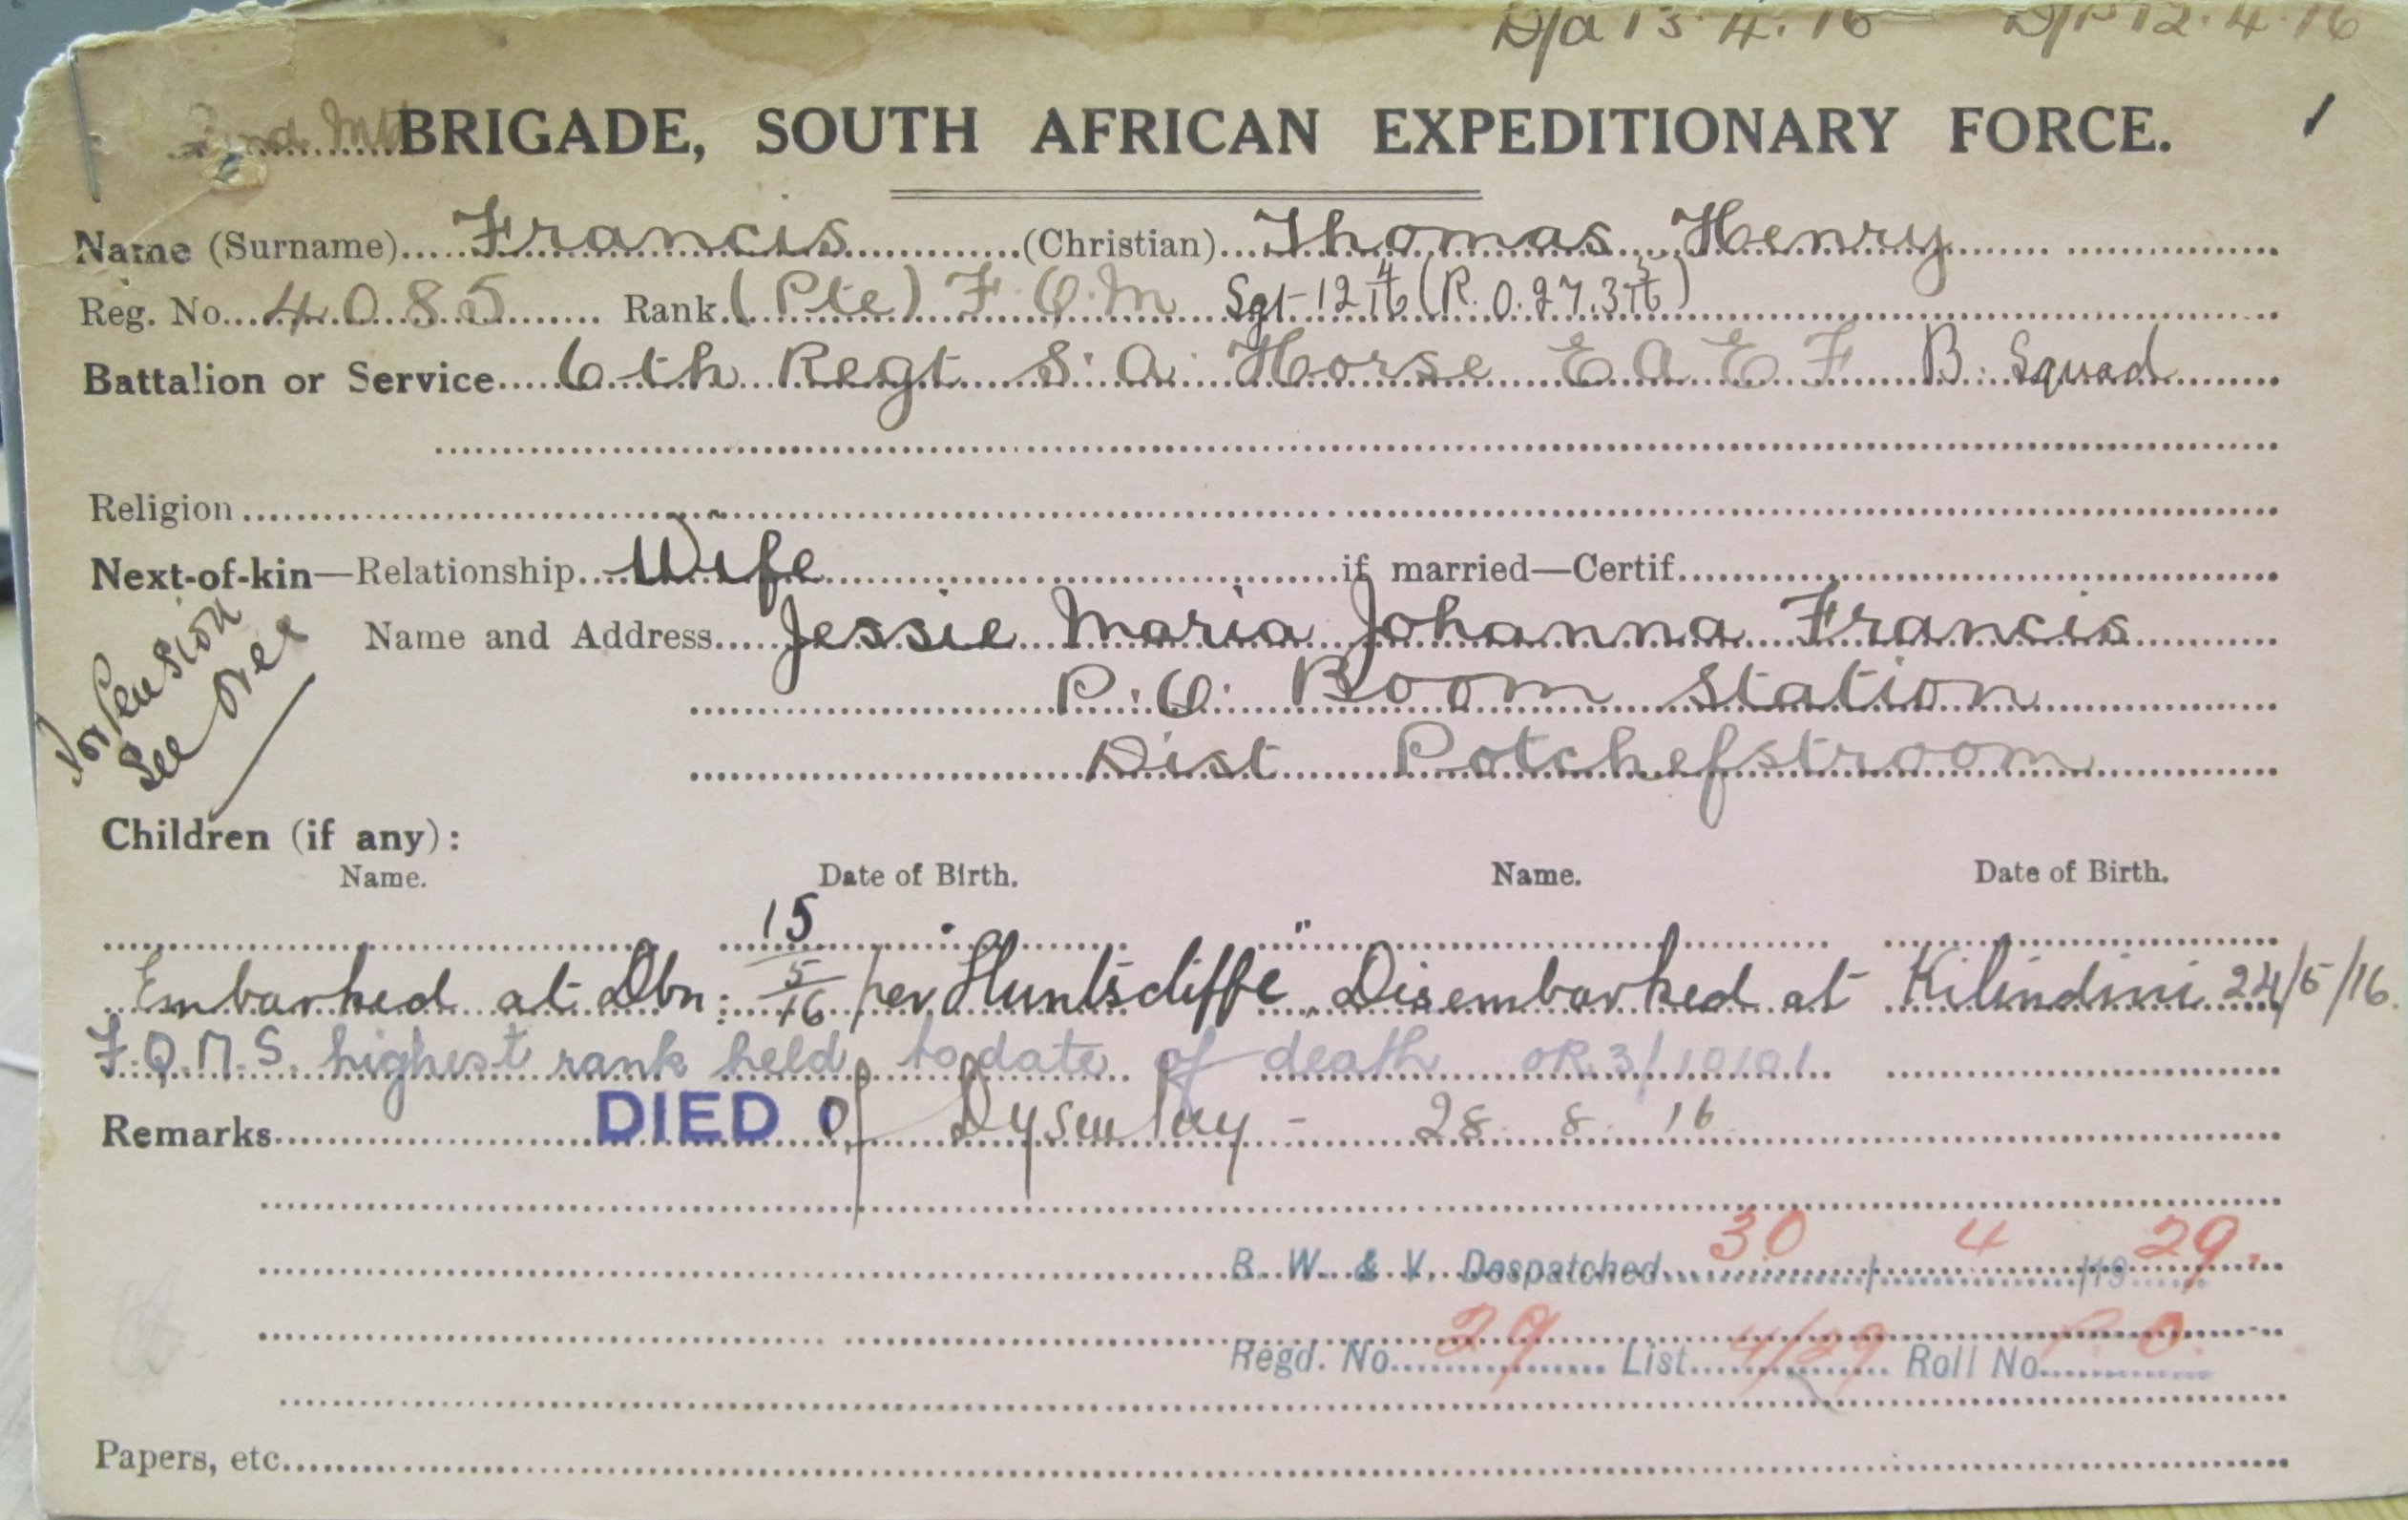 D/a 13.4.16 D/P 12.4.16
2nd Mtd BRIGADE, SOUTH AFRICAN EXPEDITIONARY FORCE.
Name (Surname) Francis (Christian) Thomas Henry
Reg. No. 4085 Rank (Pte) F.Q.M Sgt 12 4/16 (R.O.27.3 5/16)
Battalion or Service 6th Regt S.A. Horse E A E F B. Squad
Religion
Next-of-kin—Relationship Wife if married—Certif.
Name and Address Jessie Maria Johanna Francis
P.O. Boom Station
Dist Potchefstroom
For Pension
See over
Children (if any):
Name. Date of Birth. Name. Date of Birth.
Embarked at Dbn: 15/5/16 per "Huntscliffe" Disembarked at Kilindini 24/5/16.
F.Q.M.S. highest rank held to date of death OR 3/10101
Remarks DIED of Dysentery - 28 8 16
B. W. & V. Despatched 30 / 4 /1929.
Regd. No. 29 List 4/29 Roll No. P.O.
Papers, etc.